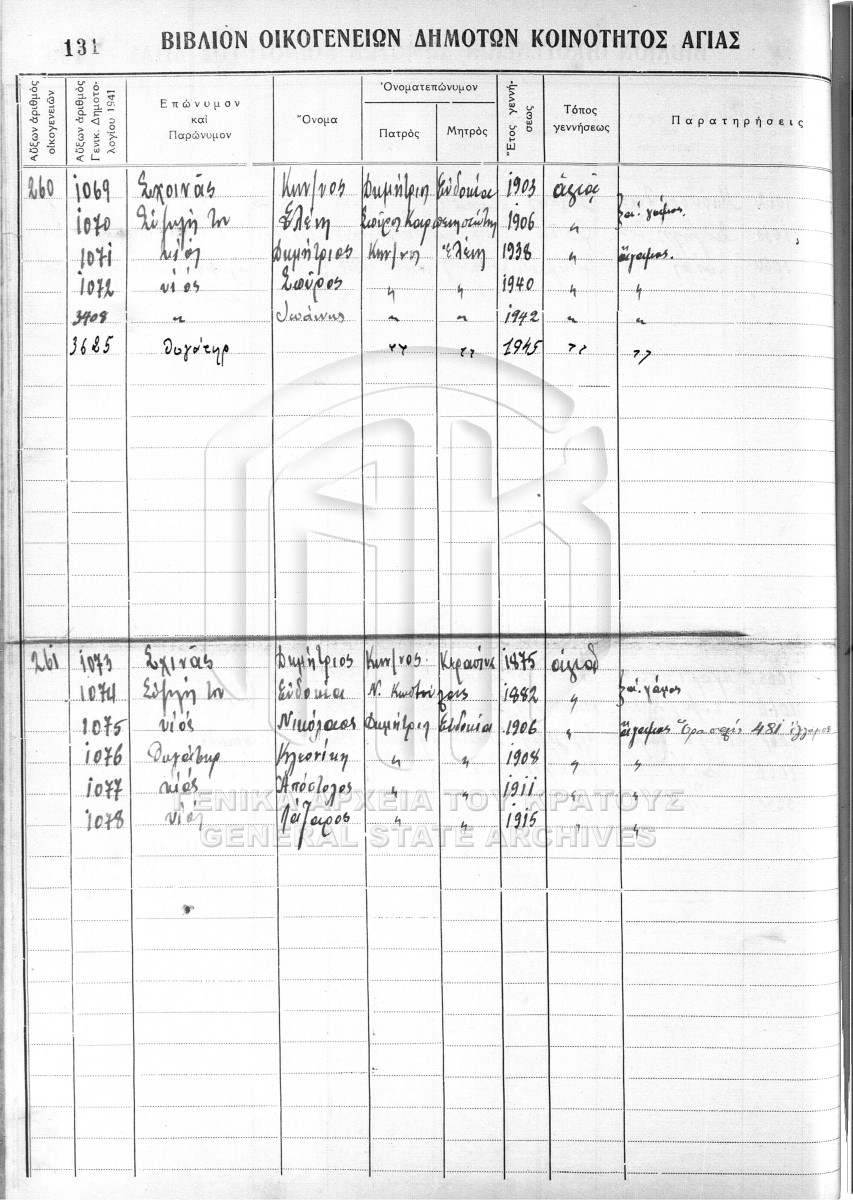 131 ΒΙΒΛΙΟΝ ΟΙΚΟΓΕΝΕΙΩΝ ΔΗΜΟΤΩΝ ΚΟΙΝΟΤΗΤΟΣ ΑΓΙΑΣ
Αὔξων ἀριθμὸς οἰκογενειῶν
Αὔξων ἀριθμὸς Γενικ. Δημοτολογίου 1941
Ἐπώνυμον καὶ Παρώνυμον
Ὄνομα
Ὀνοματεπώνυμον
Πατρὸς Μητρὸς
Ἔτος γεννήσεως
Τόπος γεννήσεως
Παρατηρήσεις
260 1069 Σχοινᾶς Κων/νος Δημήτριος Εὐδοκία 1903 ἁγιᾶ
1070 Σύζυγή του Ἑλένη Σπύρος 1906 〃 γάμος.
1071 υἱός Δημήτριος Κων/νος Ἑλένη 1938 〃 ἄγαμος.
1072 υἱός Σπῦρος 〃 〃 1940 〃 〃
3408 〃 Ἰωάννης 〃 〃 1942 〃 〃
3625 θυγάτηρ 〃 〃 1945 〃 〃
261 1073 Σχινᾶς Δημήτριος Κων/νος 1875 ἁγιᾶ
1074 Σύζυγή του Εὐδοκία Ν. 1882 〃 γάμος
1075 υἱός Νικόλαος Δημήτριος Εὐδοκία 1906 〃 ἄγαμος 481 ἔγγαμος
1076 θυγάτηρ Κλεονίκη 〃 〃 1908 〃 〃
1077 υἱός Ἀπόστολος 〃 〃 1911 〃 〃
1078 υἱός Λάζαρος 〃 〃 1915 〃 〃
ΓΕΝΙΚΑ ΑΡΧΕΙΑ ΤΟΥ ΚΡΑΤΟΥΣ
GENERAL STATE ARCHIVES